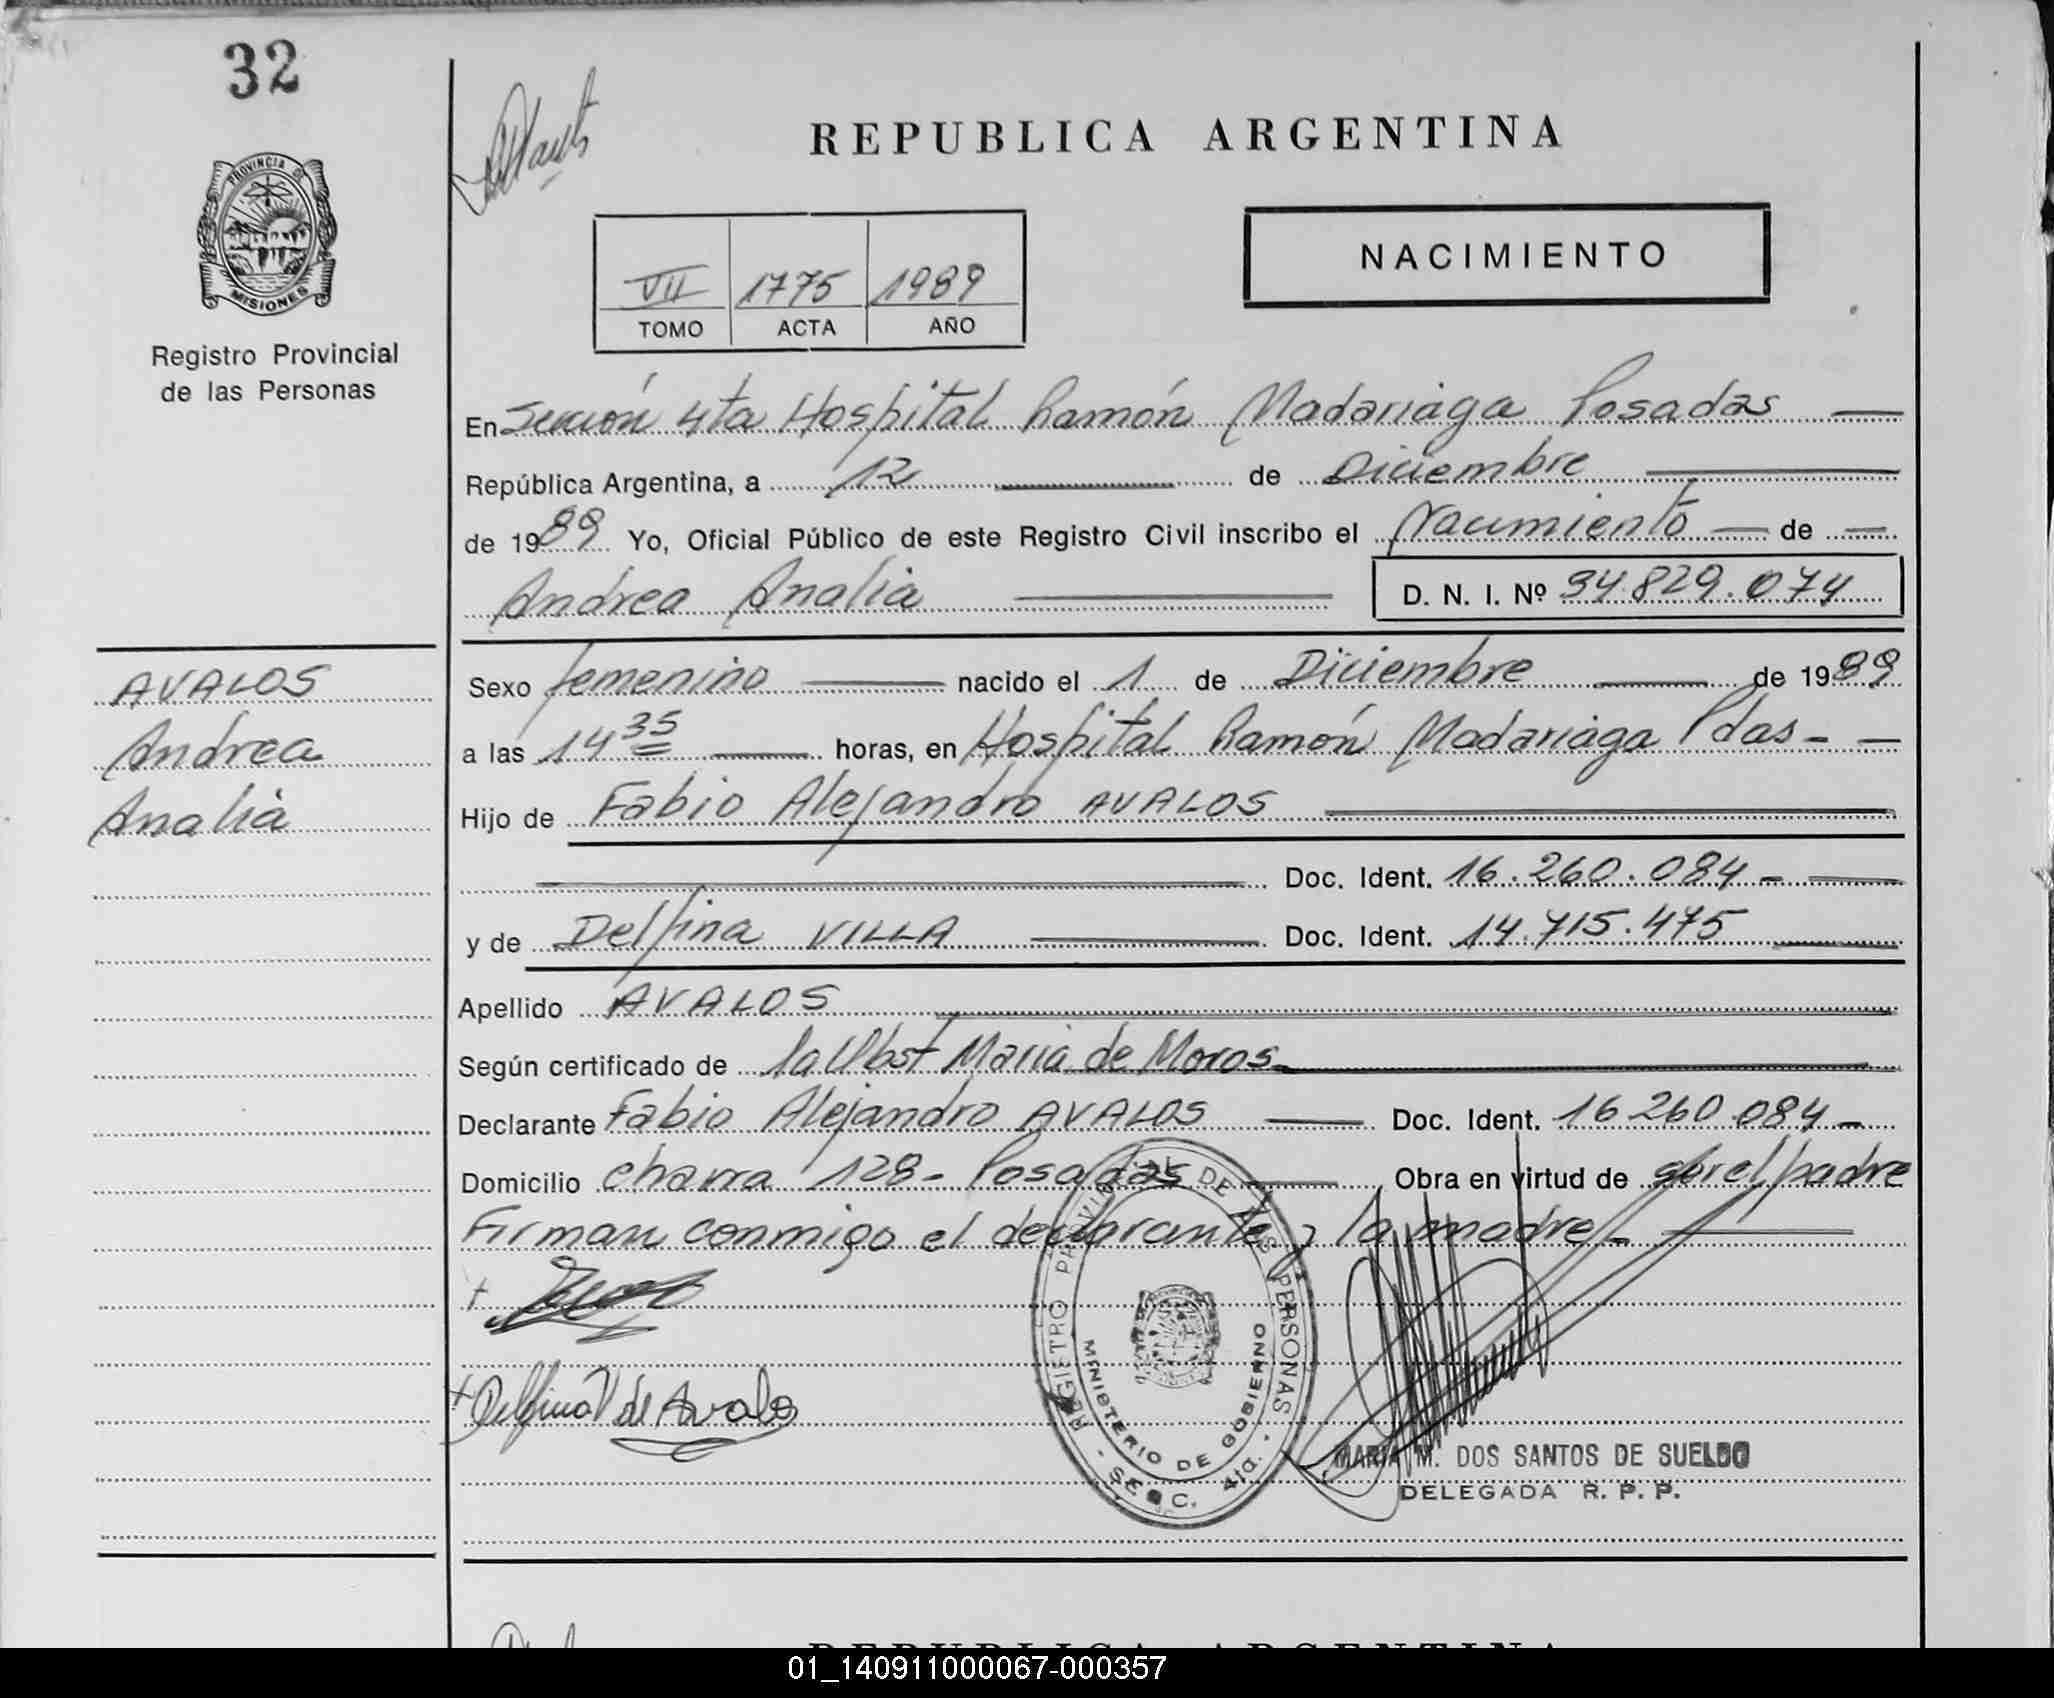 32
REPUBLICA ARGENTINA
PROVINCIA DE
MISIONES
Registro Provincial
de las Personas
NACIMIENTO
VII 1775 1989
TOMO ACTA AÑO
En Sección 4ta Hospital Ramón Madariaga Posadas
República Argentina, a 12 de Diciembre
de 1989 Yo, Oficial Público de este Registro Civil inscribo el Nacimiento de
Andrea Analia D. N. I. Nº 34.829.074
AVALOS
Andrea
Analia
Sexo femenino nacido el 1 de Diciembre de 1989
a las 14 35 horas, en Hospital Ramón Madariaga Pdas - -
Hijo de Fabio Alejandro AVALOS
Doc. Ident. 16.260.084 -
y de Delfina VILLA Doc. Ident. 14.715.475
Apellido AVALOS
Según certificado de la Obst Maria de Moros
Declarante Fabio Alejandro AVALOS Doc. Ident. 16 260.084 -
Domicilio charra 128 - Posadas Obra en virtud de ser el padre
Firman conmigo el declarante y la madre -
+
+ Delfina V de Avalos
REGISTRO PROVINCIAL DE LAS PERSONAS
MINISTERIO DE GOBIERNO
- SECC. 4ta. -
MARIA M. DOS SANTOS DE SUELDO
DELEGADA R. P. P.
REPUBLICA ARGENTINA
01_140911000067-000357